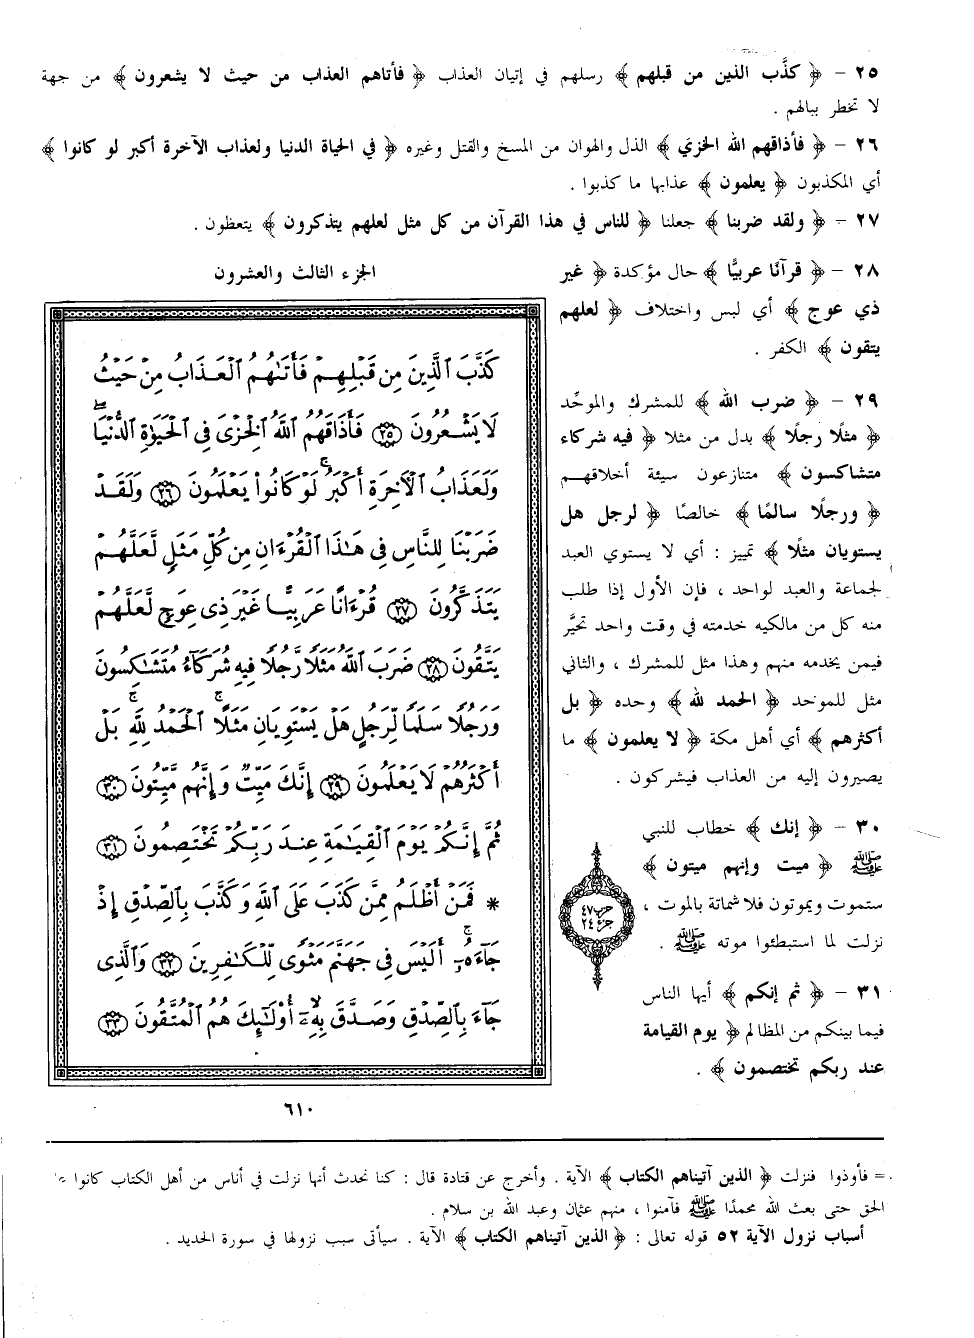 ٢٥ – ﴿ كذَّب الذين من قبلهم ﴾ رسلهم في إتيان العذاب ﴿ فأتاهم العذاب من حيث لا يشعرون ﴾ من جهة
لا تخطر ببالهم .
٢٦ – ﴿ فأذاقهم الله الخزي ﴾ الذل والهوان من المسخ والقتل وغيره ﴿ في الحياة الدنيا ولعذاب الآخرة أكبر لو كانوا ﴾
أي المكذبون ﴿ يعلمون ﴾ عذابها ما كذبوا .
٢٧ – ﴿ ولقد ضربنا ﴾ جعلنا ﴿ للناس في هذا القرآن من كل مثل لعلهم يتذكرون ﴾ يتعظون .
٢٨ – ﴿ قرآنًا عربيًّا ﴾ حال مؤكدة ﴿ غير
ذي عوج ﴾ أي لبس واختلاف ﴿ لعلهم
يتقون ﴾ الكفر .
٢٩ – ﴿ ضرب الله ﴾ للمشرك والموحِّد
﴿ مثلًا رجلًا ﴾ بدل من مثلا ﴿ فيه شركاء
متشاكسون ﴾ متنازعون سيئة أخلاقهم
﴿ ورجلًا سالمًا ﴾ خالصًا ﴿ لرجل هل
يستويان مثلًا ﴾ تمييز : أي لا يستوي العبد
لجماعة والعبد لواحد ، فإن الأول إذا طلب
منه كل من مالكيه خدمته في وقت واحد تحيَّر
فيمن يخدمه منهم وهذا مثل للمشرك ، والثاني
مثل للموحد ﴿ الحمد لله ﴾ وحده ﴿ بل
أكثرهم ﴾ أي أهل مكة ﴿ لا يعلمون ﴾ ما
يصيرون إليه من العذاب فيشركون .
٣٠ – ﴿ إنك ﴾ خطاب للنبي
ﷺ ﴿ ميت وإنهم ميتون ﴾
ستموت ويموتون فلا شماتة بالموت ،
نزلت لما استبطئوا موته ﷺ .
٣١ – ﴿ ثم إنكم ﴾ أيها الناس
فيما بينكم من المظالم ﴿ يوم القيامة
عند ربكم تختصمون ﴾ .
حزب ٤٧
جزء ٢٤
الجزء الثالث والعشرون
كَذَّبَ ٱلَّذِينَ مِن قَبْلِهِمْ فَأَتَىٰهُمُ ٱلْعَذَابُ مِنْ حَيْثُ
لَا يَشْعُرُونَ ٢٥ فَأَذَاقَهُمُ ٱللَّهُ ٱلْخِزْىَ فِى ٱلْحَيَوٰةِ ٱلدُّنْيَا ۖ
وَلَعَذَابُ ٱلْءَاخِرَةِ أَكْبَرُ ۚ لَوْ كَانُوا۟ يَعْلَمُونَ ٢٦ وَلَقَدْ
ضَرَبْنَا لِلنَّاسِ فِى هَٰذَا ٱلْقُرْءَانِ مِن كُلِّ مَثَلٍ لَّعَلَّهُمْ
يَتَذَكَّرُونَ ٢٧ قُرْءَانًا عَرَبِيًّا غَيْرَ ذِى عِوَجٍ لَّعَلَّهُمْ
يَتَّقُونَ ٢٨ ضَرَبَ ٱللَّهُ مَثَلًا رَّجُلًا فِيهِ شُرَكَآءُ مُتَشَٰكِسُونَ
وَرَجُلًا سَلَمًا لِّرَجُلٍ هَلْ يَسْتَوِيَانِ مَثَلًا ۚ ٱلْحَمْدُ لِلَّهِ ۚ بَلْ
أَكْثَرُهُمْ لَا يَعْلَمُونَ ٢٩ إِنَّكَ مَيِّتٌ وَإِنَّهُم مَّيِّتُونَ ٣٠
ثُمَّ إِنَّكُمْ يَوْمَ ٱلْقِيَٰمَةِ عِندَ رَبِّكُمْ تَخْتَصِمُونَ ٣١
* فَمَنْ أَظْلَمُ مِمَّن كَذَبَ عَلَى ٱللَّهِ وَكَذَّبَ بِٱلصِّدْقِ إِذْ
جَآءَهُۥٓ ۚ أَلَيْسَ فِى جَهَنَّمَ مَثْوًى لِّلْكَٰفِرِينَ ٣٢ وَٱلَّذِى
جَآءَ بِٱلصِّدْقِ وَصَدَّقَ بِهِۦٓ ۙ أُو۟لَٰٓئِكَ هُمُ ٱلْمُتَّقُونَ ٣٣
٦١٠
= فأوذوا فنزلت ﴿ الذين آتيناهم الكتاب ﴾ الآية . وأخرج عن قتادة قال : كنا نحدث أنها نزلت في أناس من أهل الكتاب كانوا
الحق حتى بعث الله محمدًا ﷺ فآمنوا ، منهم عثمان وعبد الله بن سلام .
أسباب نزول الآية ٥٢ قوله تعالى : ﴿ الذين آتيناهم الكتاب ﴾ الآية . سيأتي سبب نزولها في سورة الحديد .